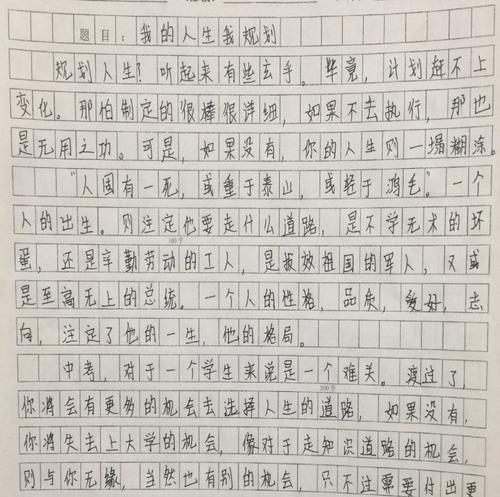 题目：我的人生我规划
规划人生？听起来有些玄乎。毕竟，计划赶不上
变化。那怕制定的很棒很详细，如果不去执行，那也
是无用之功。可是，如果没有，你的人生则一塌糊涂。
"人固有一死，或重于泰山，或轻于鸿毛。"一个
人的出生。则注定他要走什么道路，是不学无术的坏
100字
蛋，还是辛勤劳动的工人，是报效祖国的军人，又或
是至高无上的总统。一个人的性格，品质，爱好，志
向，注定了他的一生，他的格局。
中考，对于一个学生来说是一个难关。渡过了，
200字
你将会有更多的机会去选择人生的道路，如果没有，
你将失去上大学的机会，像对于走知识道路的机会，
则与你无缘，当然也有别的机会，只不过需要付出更